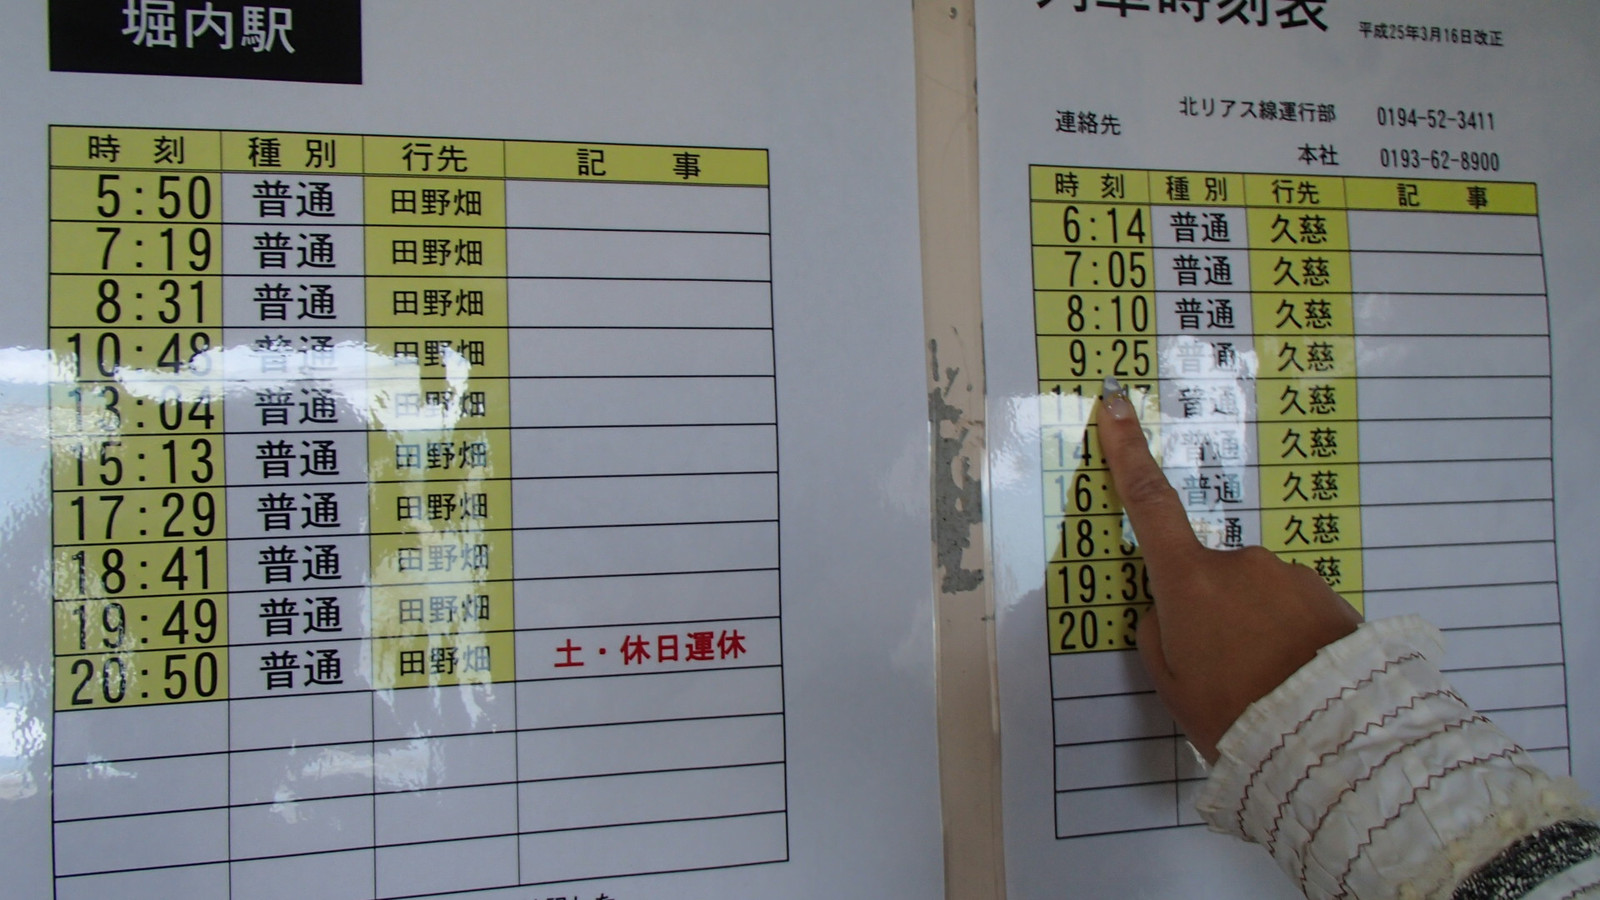 堀内駅
時刻 種別 行先 記事
5:50 普通 田野畑
7:19 普通 田野畑
8:31 普通 田野畑
10:48 普通 田野畑
13:04 普通 田野畑
15:13 普通 田野畑
17:29 普通 田野畑
18:41 普通 田野畑
19:49 普通 田野畑
20:50 普通 田野畑 土・休日運休
列車時刻表 平成25年3月16日改正
連絡先 北リアス線運行部 0194-52-3411
本社 0193-62-8900
時刻 種別 行先 記事
6:14 普通 久慈
7:05 普通 久慈
8:10 普通 久慈
9:25 普通 久慈
普通 久慈
普通 久慈
普通 久慈
普通 久慈
19:36 久慈